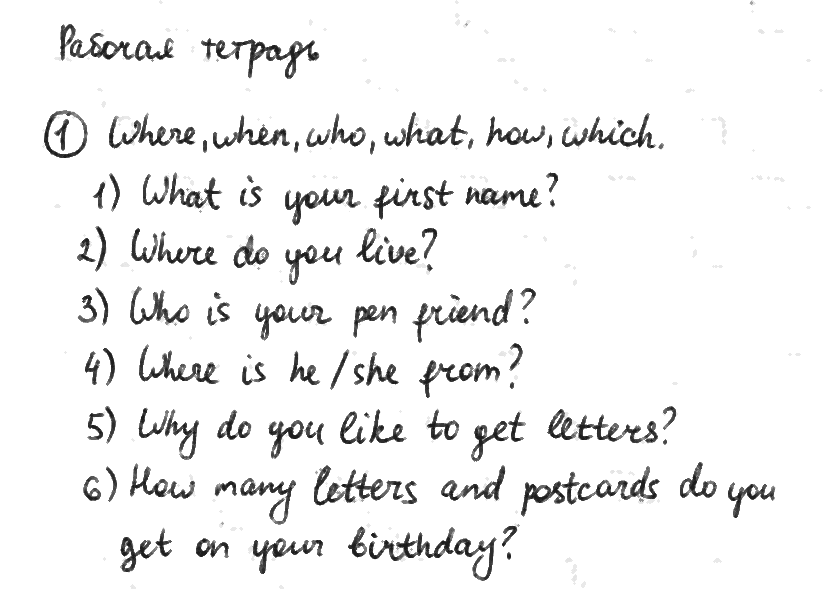 Рабочая тетрадь
① Where, when, who, what, how, which.
1) What is your first name?
2) Where do you live?
3) Who is your pen friend?
4) Where is he/she from?
5) Why do you like to get letters?
6) How many letters and postcards do you
get on your birthday?